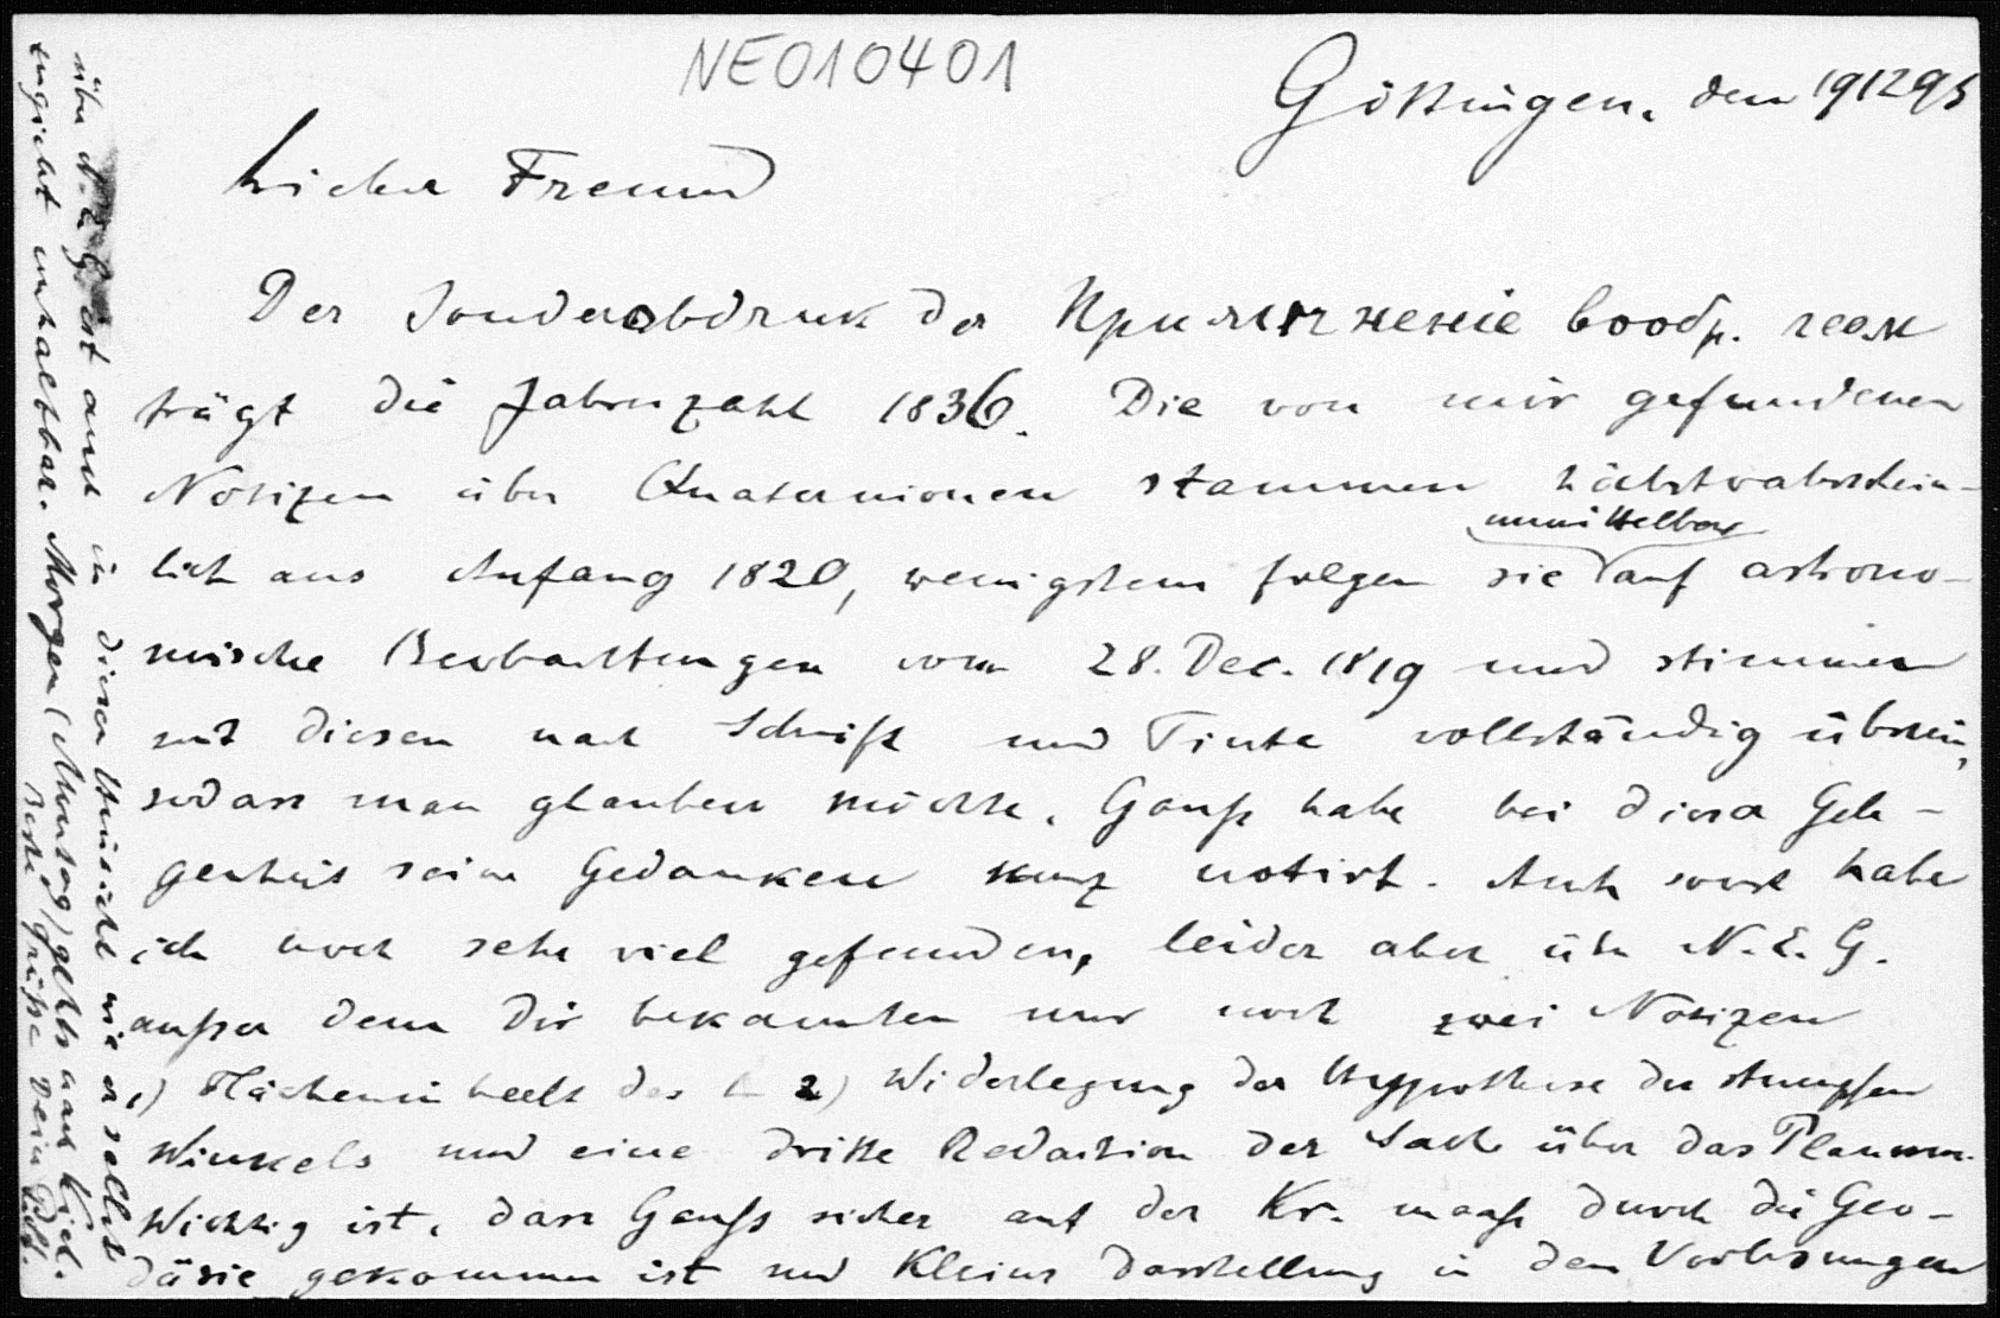 NE010401
Göttingen, den 19 12 95
Lieber Freund
Der Sonderabdruck der Примѣненіе вообр. геом
trägt die Jahreszahl 1836. Die von mir gefundenen
Notizen über Quaternionen stammen höchstwahrschein-
unmittelbar
lich aus Anfang 1820, wenigstens folgen sie auf astrono-
mische Beobachtungen vom 28. Dec. 1819 und stimmen
mit diesen nach Schrift und Tinte vollständig überein,
sodass man glauben möchte, Gauß habe bei dieser Gele-
genheit seine Gedanken kurz notirt. Auch sonst habe
ich noch sehr viel gefunden, leider aber über N. E. G.
außer dem Dir bekannten nur noch zwei Notizen
1) Flächeninhalt des △ 2) Widerlegung der Hypothese des stumpfen
Winkels und eine dritte Redaction der Sache über das Planum.
Wichtig ist, dass Gauß sicher auf der Kr. maaß durch die Geo-
däsie gekommen ist und Kleins Darstellung in den Vorlesungen
über N. E. G. ist auch in dieser Hinsicht wie er selbst
zugiebt unhaltbar. Morgen (Montag) gehts nach Kiel.
Beste Grüße Dein